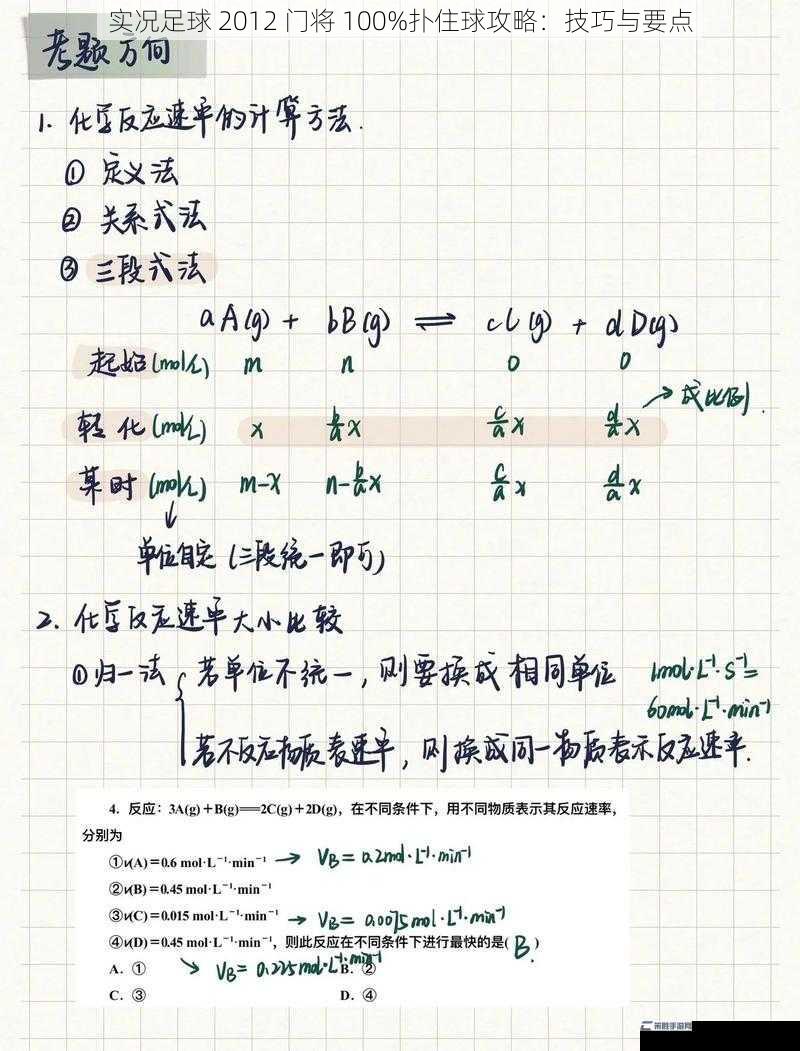 实况足球 2012 门将 100%扑住球攻略：技巧与要点
考题方向
1. 化学反应速率的计算方法.
① 定义法
② 关系式法
③ 三段式法
aA(g) + bB(g) ⇌ cC(g) + dD(g)
起始(mol/L) m n 0 0
转化(mol/L) x b/a x c/a x d/a x → 成比例.
某时(mol/L) m-x n-b/a x c/a x d/a x
↓
单位自定(三段统一即可)
2. 化学反应速率大小比较
①归一法 { 若单位不统一，则要换成相同单位 1mol·L⁻¹·s⁻¹=
60mol·L⁻¹·min⁻¹
若不反应物质表速率，则换成同一物质表示反应速率.
4．反应：3A(g)＋B(g)══2C(g)＋2D(g)，在不同条件下，用不同物质表示其反应速率，
分别为
①v(A)＝0.6 mol·L⁻¹·min⁻¹ → VB = 0.2mol·L⁻¹·min⁻¹
②v(B)＝0.45 mol·L⁻¹·min⁻¹
③v(C)＝0.015 mol·L⁻¹·min⁻¹ → VB = 0.0075mol·L⁻¹·min⁻¹
④v(D)＝0.45 mol·L⁻¹·min⁻¹，则此反应在不同条件下进行最快的是( B. )
→ VB = 0.225mol·L⁻¹·min⁻¹
A．① B．②
C．③ D．④